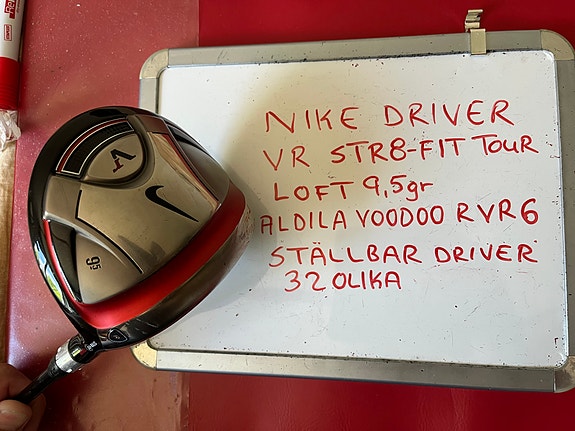 NIKE DRIVER
VR STR8-FIT TOUR
LOFT 9,5gr
ALDILA VOODOO RVR6
STÄLLBAR DRIVER
32 OLIKA
VR
9.5°